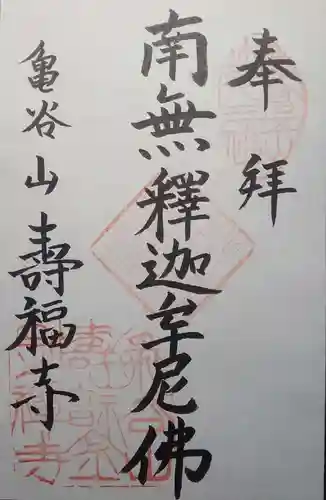 奉拜
南無釋迦牟尼佛
亀谷山壽福寺